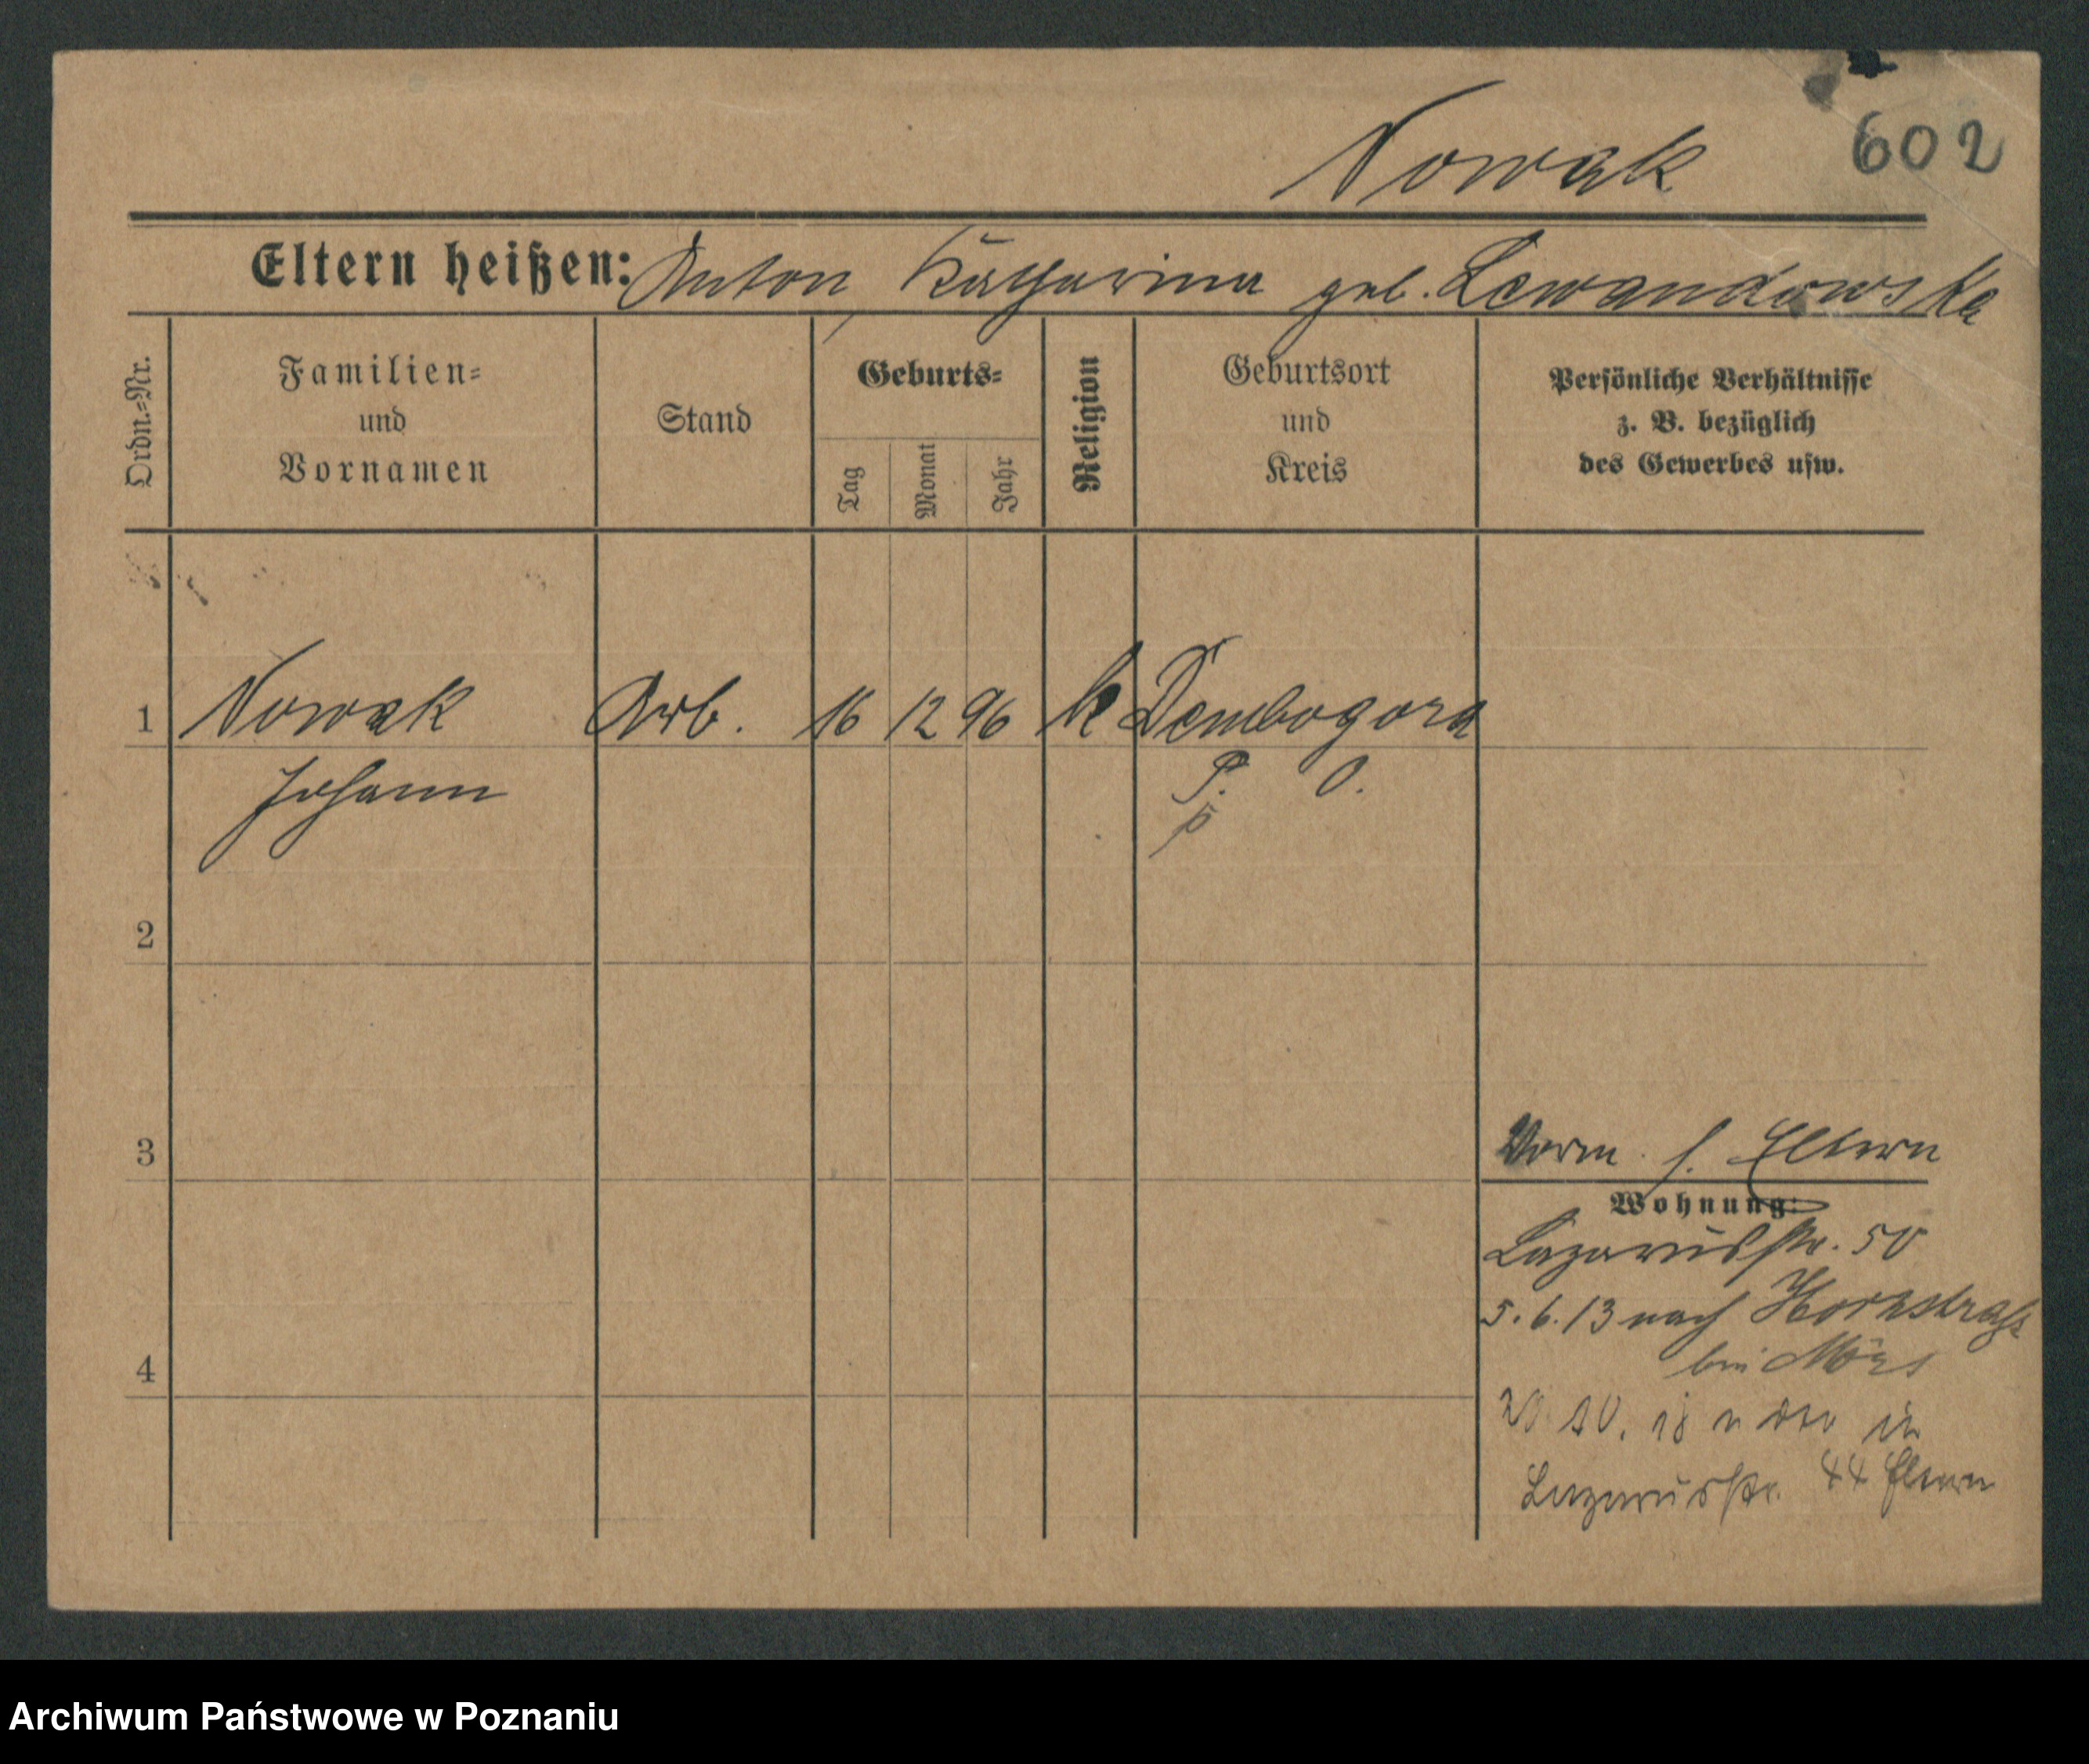 Nowak 602
Eltern heißen: Anton, Katharina geb. Lewandowska
Ordn.=Nr.
Familien=
und
Vornamen
Stand
Geburts=
Tag
Monat
Jahr
Religion
Geburtsort
und
Kreis
Persönliche Verhältnisse
z. B. bezüglich
des Gewerbes usw.
1 Nowak Arb. 16 12 96 k Dembogora
Johann P. O.
2
3
Vorm. s. Eltern
Wohnung:
Lazarusstr. 50
5.6.13 nach Hochstraße
bei Mörs
4
20.10.18 in
Lazarusstr. 44 Eltern
Archiwum Państwowe w Poznaniu